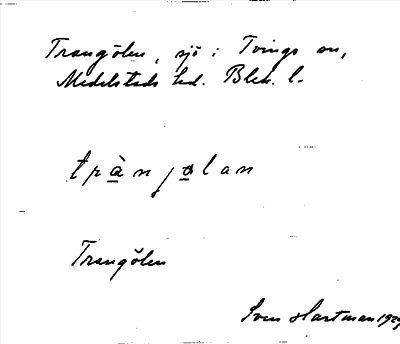 Trangölen, sjö i Tvings sn,
Medelstads hd. Blek. l.
trànjo̲lan
Trangölen
Sven Hartman 1929